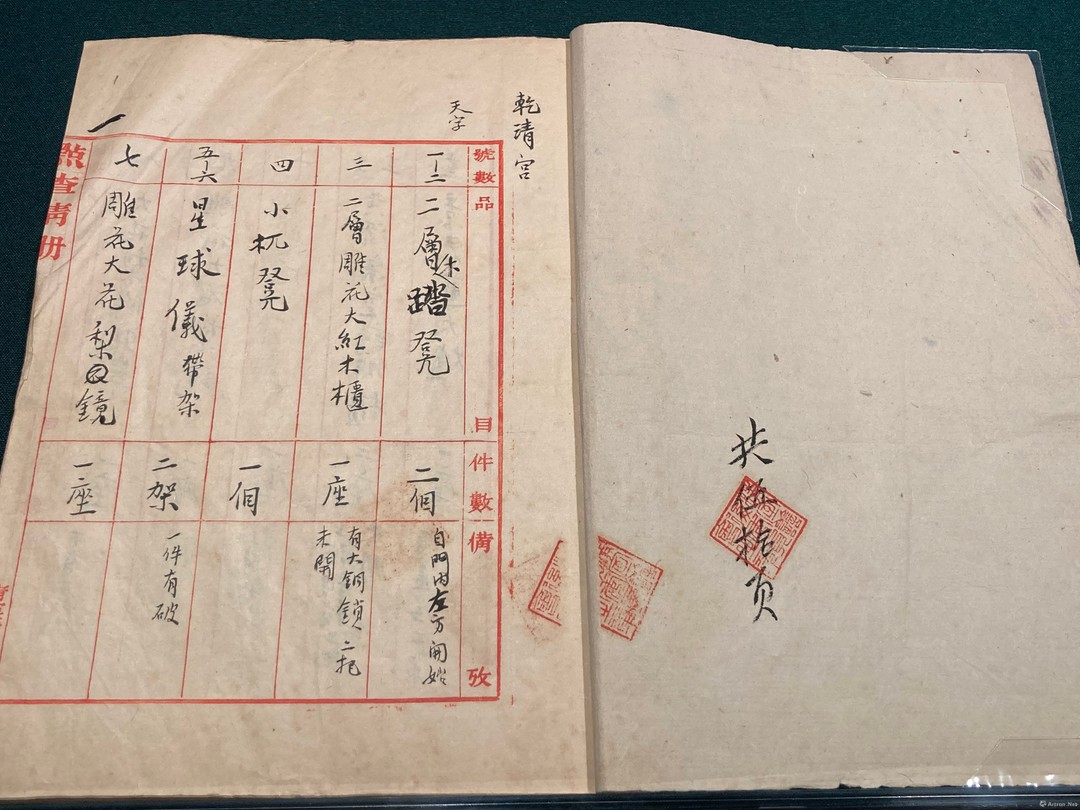 共伍拾頁
乾清宮
天字
號數
品目
件數
備攷
一—二
二層木踏凳
二個
自門内左方開始
三
二層雕花大紅木櫃
一座
有大銅鎖二把
未開
四
小杌凳
一個
五—六
星球儀帶架
二架
一件有破
七
雕花大花梨鏡
一座
一
點查清册